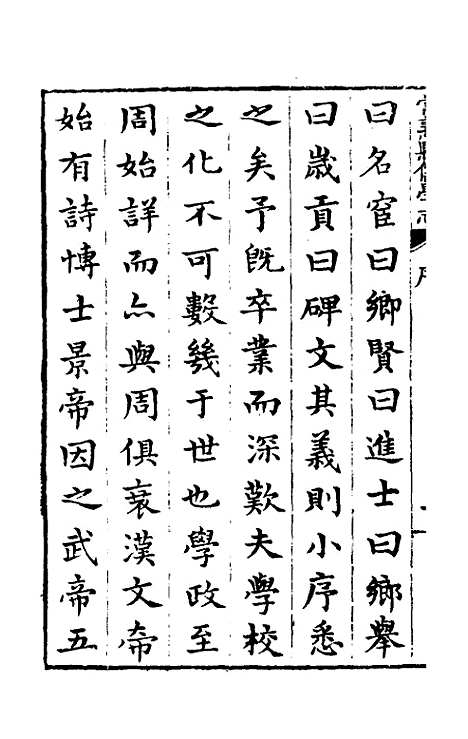 曰名宦曰鄉賢曰進士曰鄉舉
曰歲貢曰碑文其義則小序悉
之矣予既卒業而深歎夫學校
之化不可數幾于世也學政至
周始詳而亦與周俱衰漢文帝
始有詩博士景帝因之武帝五